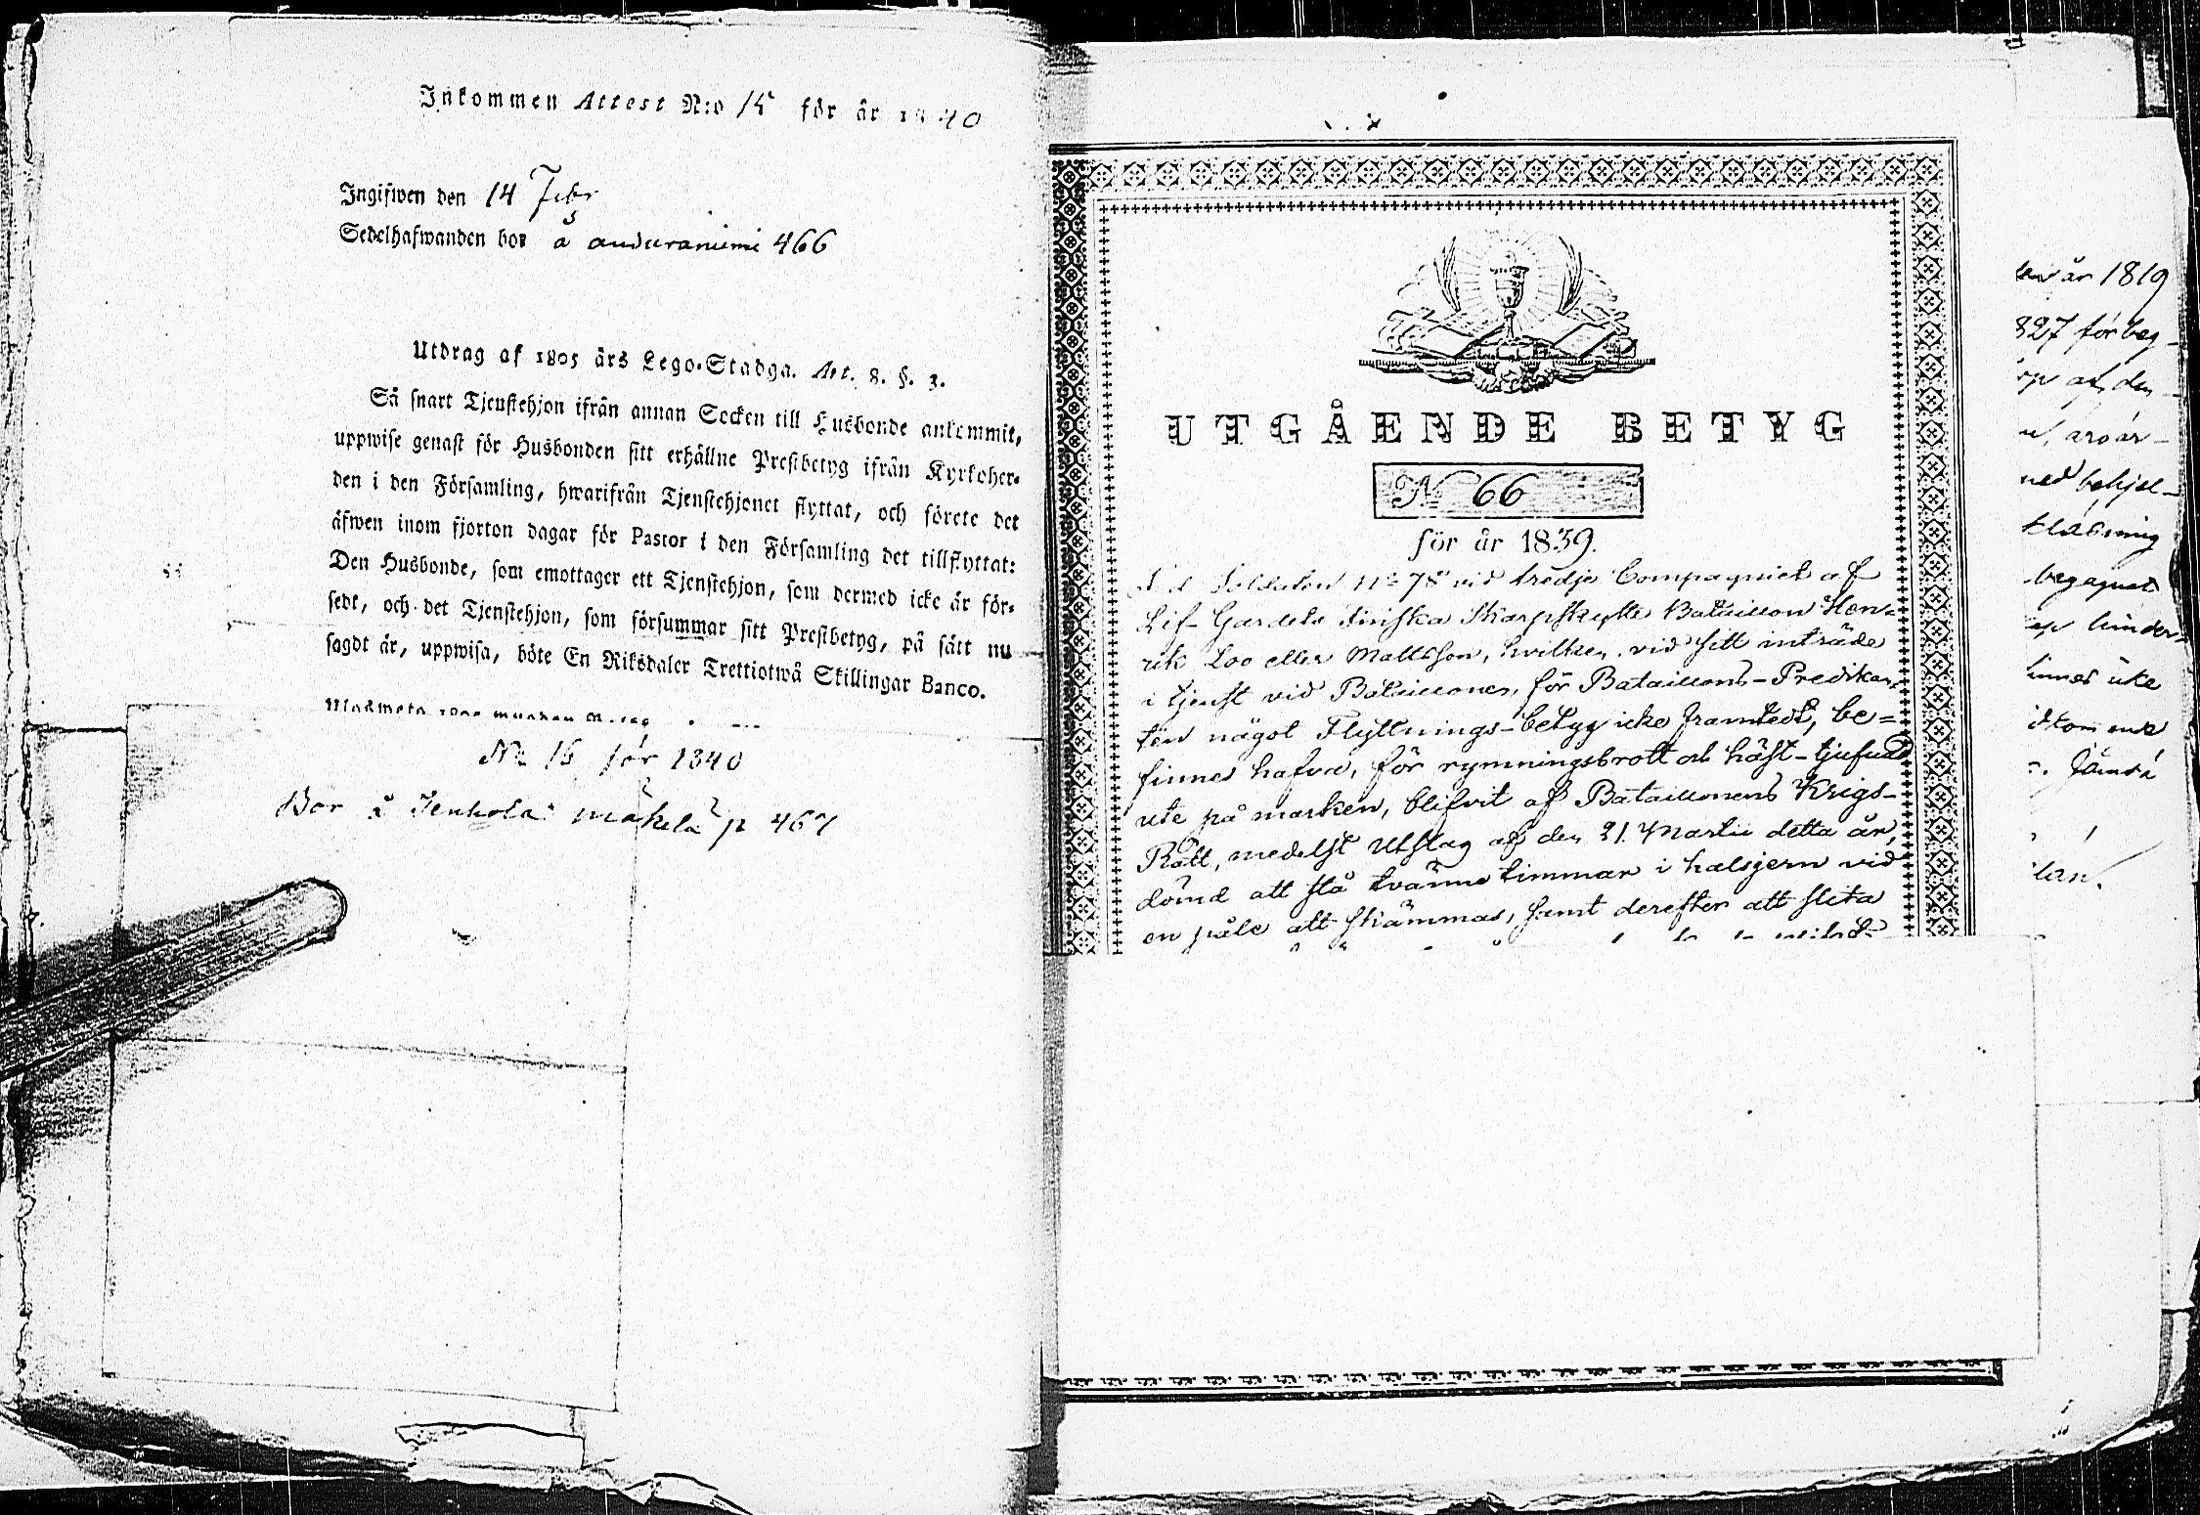 Inkommen Attest N:o 15 för år 1840
Ingifwen den 14 Febr
Sedelhafwanden bor å anduraniemi 466
Utdrag af 1805 års Lego-Stadga. Art. 8. §. 3.
Så snart Tjenstehjon ifrån annan Socken till Husbonde ankommit,
uppwise genast för Husbonden sitt erhållne Prestbetyg ifrån Kyrkoher-
den i den Församling, hwarifrån Tjenstehjonet flyttat, och förete det
äfwen inom fjorton dagar för Pastor i den Församling det tillflyttat:
Den Husbonde, som emottager ett Tjenstehjon, som dermed icke är för-
sedt, och det Tjenstehjon, som försummar sitt Prestbetyg, på sätt nu
sagdt är, uppwisa, böte En Riksdaler Trettiotwå Skillingar Banco.
No 16 för 1840
Bor å mäkelä p 467
UTGÅENDE BETYG
No 66
för år 1839.
Soldaten No 78 vid tredje Compagniet af
Lif-Gardets Finska Skarpskytte Bataillon Hen-
rik Loo eller Mattsson, hvilken vid sitt inträde
i tjenst vid Bataillonen, för Bataillons-Predikan-
ten något Flyttnings-betyg icke framtedt, be=
finnes hafva, för rymningsbrott och häst-tjufnad
ute på marken, blifvit af Bataillonens Krigs-
Rätt, medelst Utslag af den 21. Martii detta år,
dömd att stå tvänne timmar i halsjern vid
en påle att skämmas, samt derefter att slita
år 1819
827 för beg-
af den
ned behjel-
kladning
begagnat
hinder-
finnes icke
Jämsä
län.